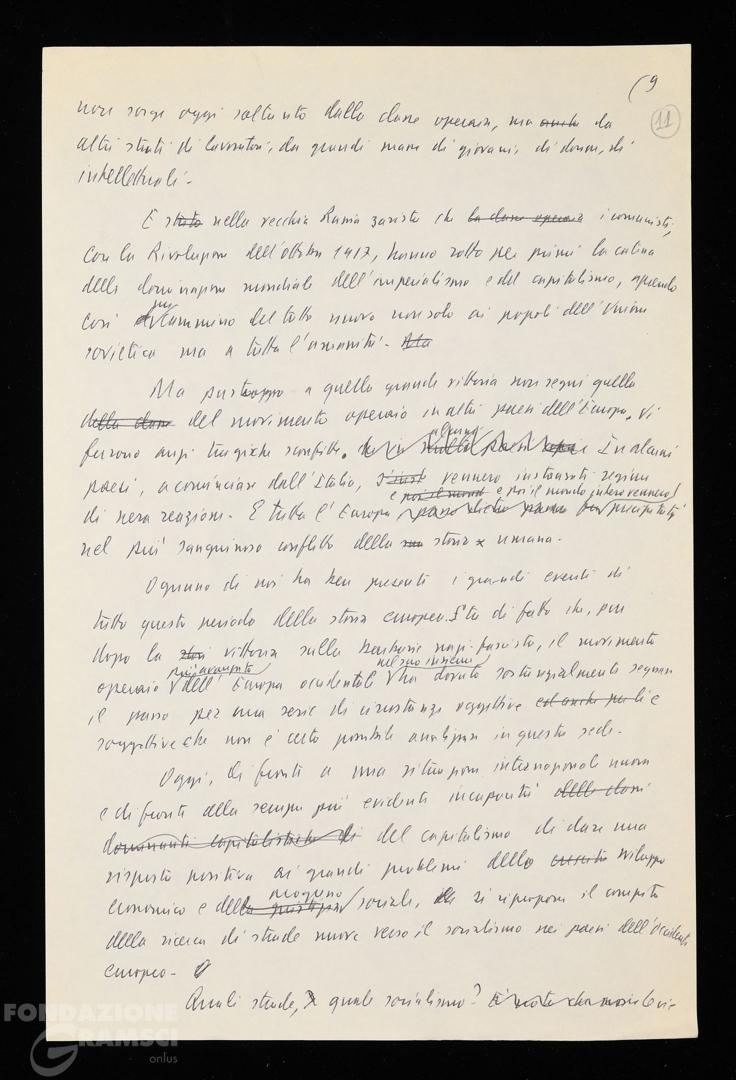 (9
11
non sorge oggi soltanto dalla classe operaia, ma anche da
altri strati di lavoratori, da grandi masse di giovani, di donne, di
intellettuali.
E stato nella vecchia Russia zarista che la classe operaia i comunisti,
con la Rivoluzione dell'ottobre 1917, hanno rotto per primi la catena
della dominazione mondiale dell'imperialismo e del capitalismo, aprendo
così un cammino del tutto nuovo non solo ai popoli dell'Unione
sovietica ma a tutta l'umanità. Ma
Ma purtroppo a quella grande vittoria non seguì quella
della classe del movimento operaio in altri paesi dell'Europa. Vi
alcuni
furono anzi tragiche sconfitte. In alcuni
paesi, a cominciare dall'Italia, vennero instaurati regimi
e poi il mondo e poi il mondo intero vennero
di nera reazione. E tutta l'Europa precipitati
nel più sanguinoso conflitto della sua storia umana.
Ognuno di noi ha ben presenti i grandi eventi di
tutto questo periodo della storia europea. Sta di fatto che, pur
dopo la vittoria sulla barbarie nazi-fascista, il movimento
più avanzato nel suo insieme
operaio dell'Europa occidentale ha dovuto sostanzialmente segnare
il passo per una serie di circostanze oggettive ed anche e
soggettive che non è certo possibile analizzare in questa sede.
Oggi, di fronte a una situazione internazionale nuova
e di fronte alla sempre più evidente incapacità delle classi
dominanti capitalistiche di del capitalismo di dare una
risposta positiva ai grandi problemi dello crescita sviluppo
progresso
economico e della giustizia sociale, si ripropone il compito
della ricerca di strade nuove verso il socialismo nei paesi dell'Occidente
europeo.
Quali strade, quale socialismo? E' noto che
FONDAZIONE
GRAMSCI
onlus